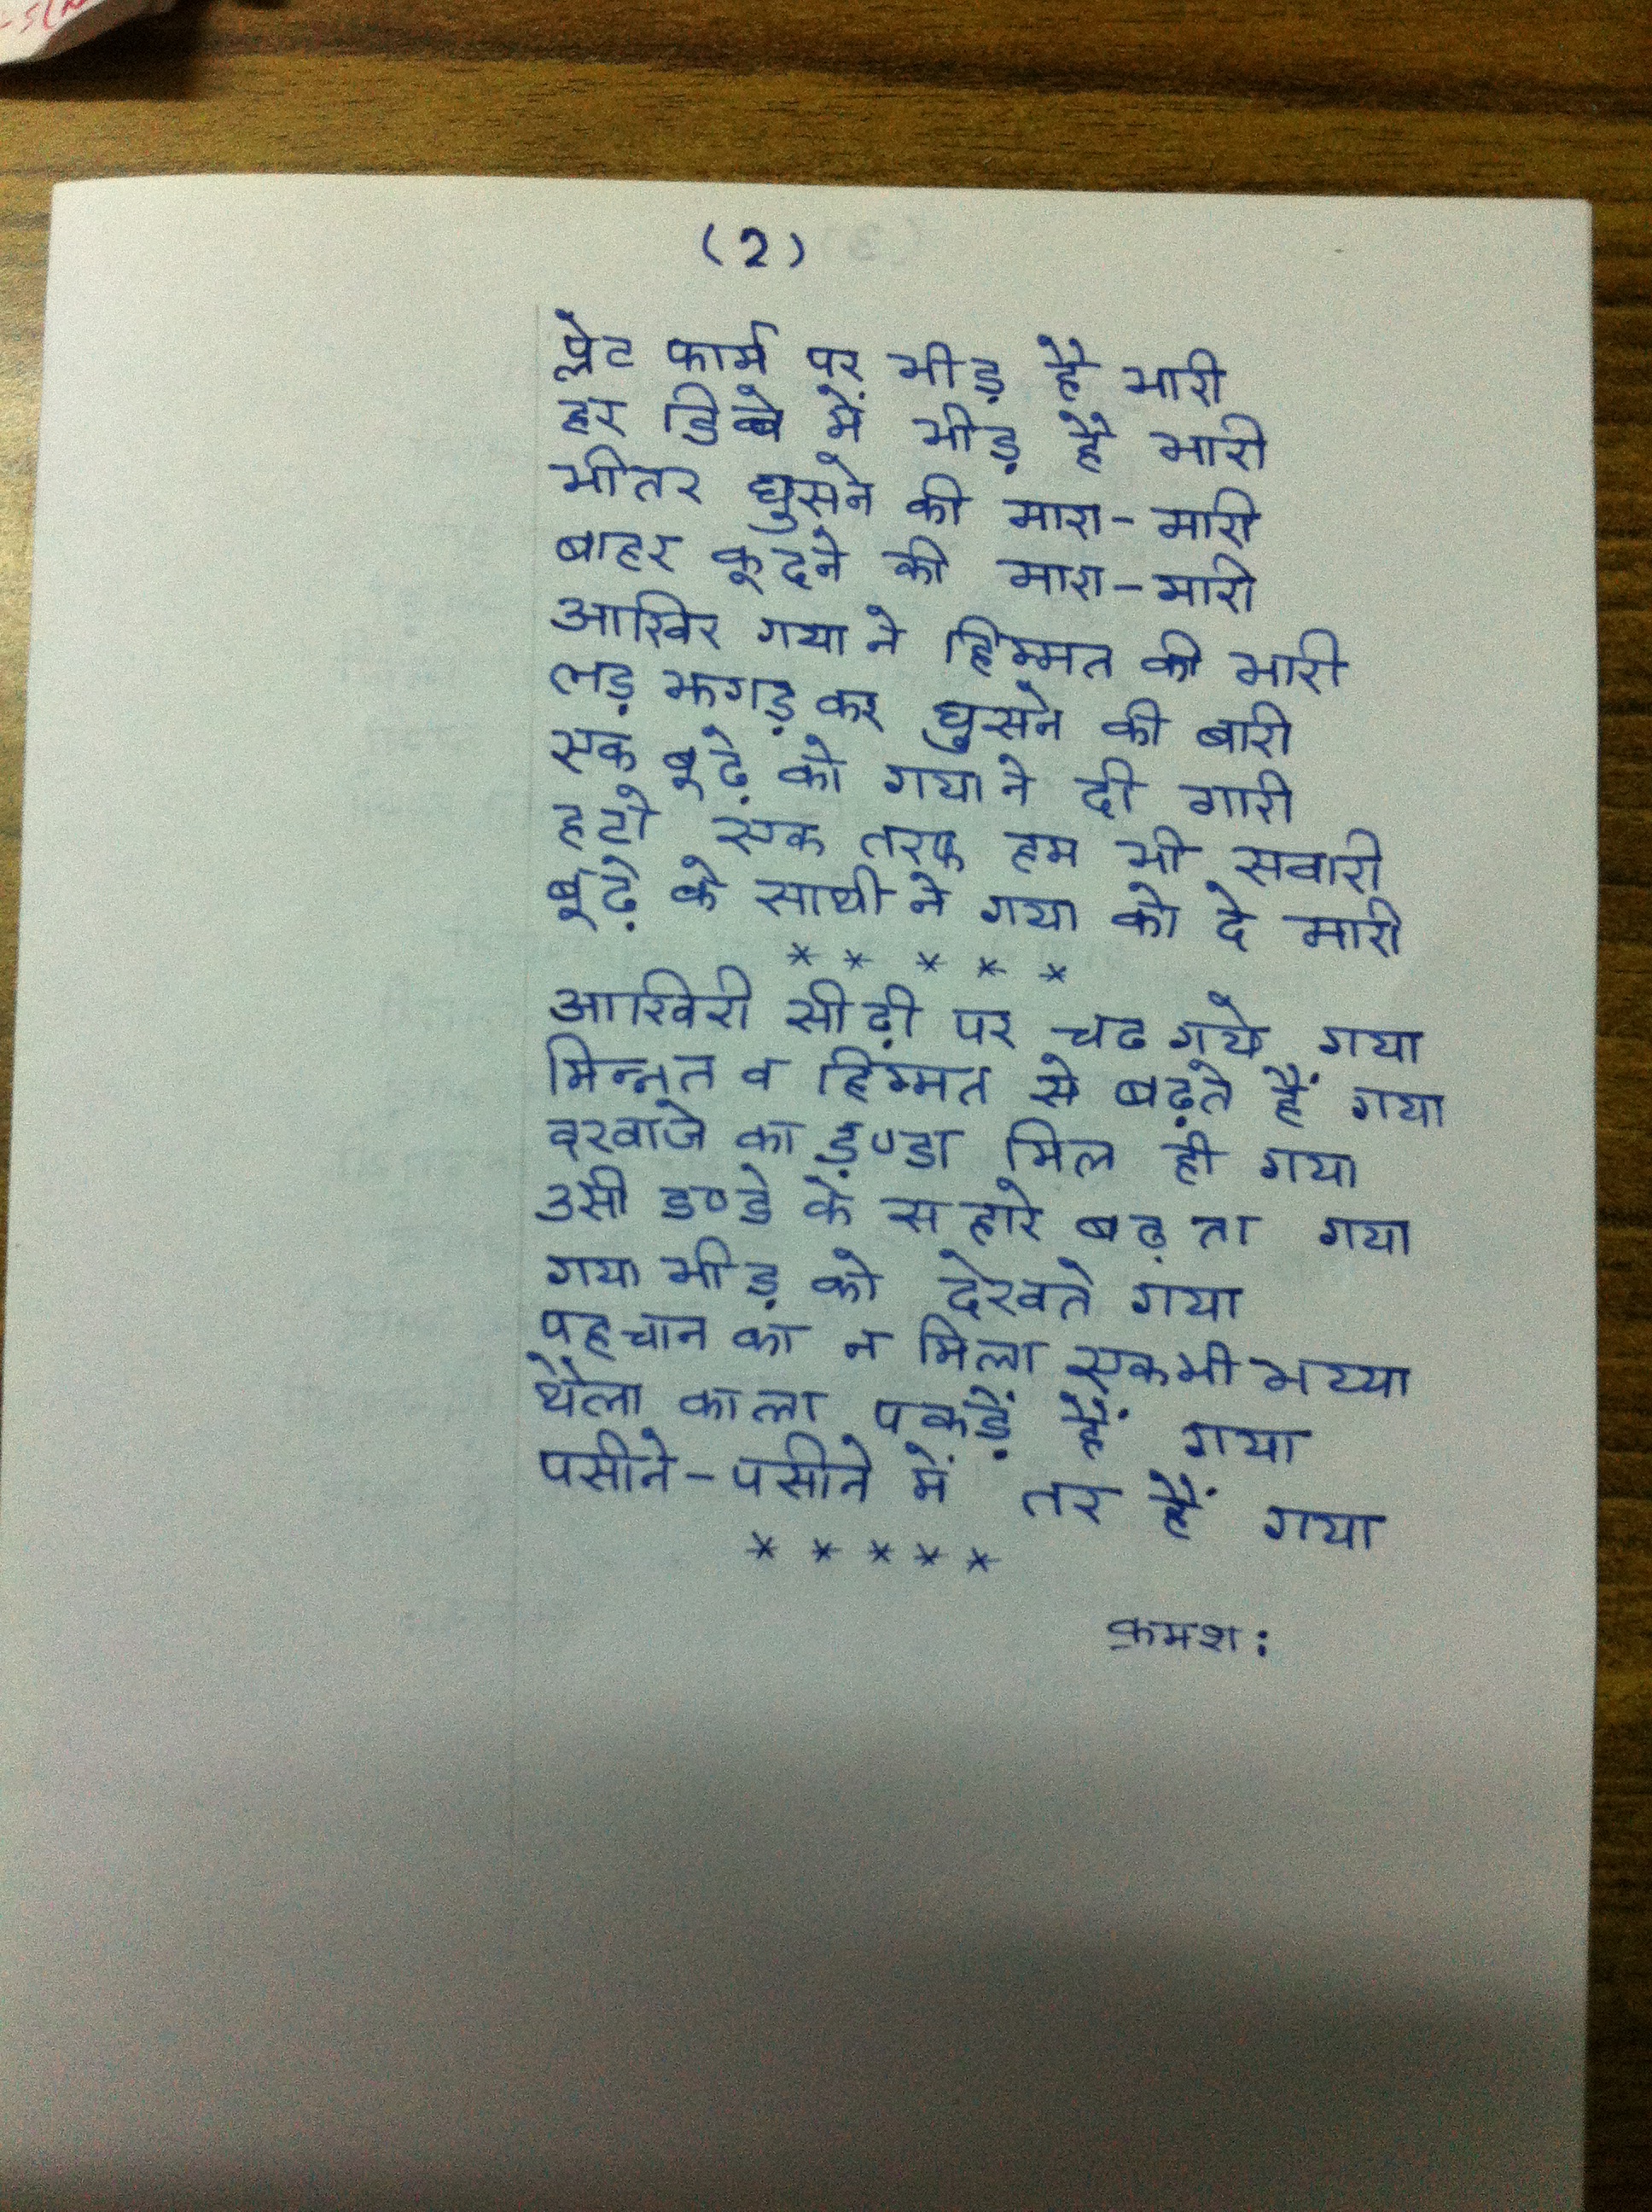 (2)
प्लेट फार्म पर भीड़ है भारी
हर डिब्बे में भीड़ है भारी
भीतर घुसने की मारा-मारी
बाहर कूदने की मारा-मारी
आखिर गया ने हिम्मत की भारी
लड़ झगड़ कर घुसने की बारी
एक बूढ़े को गया ने दी गारी
हटो एक तरफ हम भी सवारी
बूढ़े के साथी ने गया को दे मारी
* * * * *
आखिरी सीढ़ी पर चढ गये गया
मिन्नत व हिम्मत से बढ़ते हैं गया
दरवाजे का ड़ण्डा मिल ही गया
उसी डण्डे के सहारे बढ़ता गया
गया भीड़ को देखते गया
पहचान का न मिला एक भी भय्या
थैला काला पकड़ें हैं गया
पसीने-पसीने में तर हैं गया
* * * * *
क्रमश: